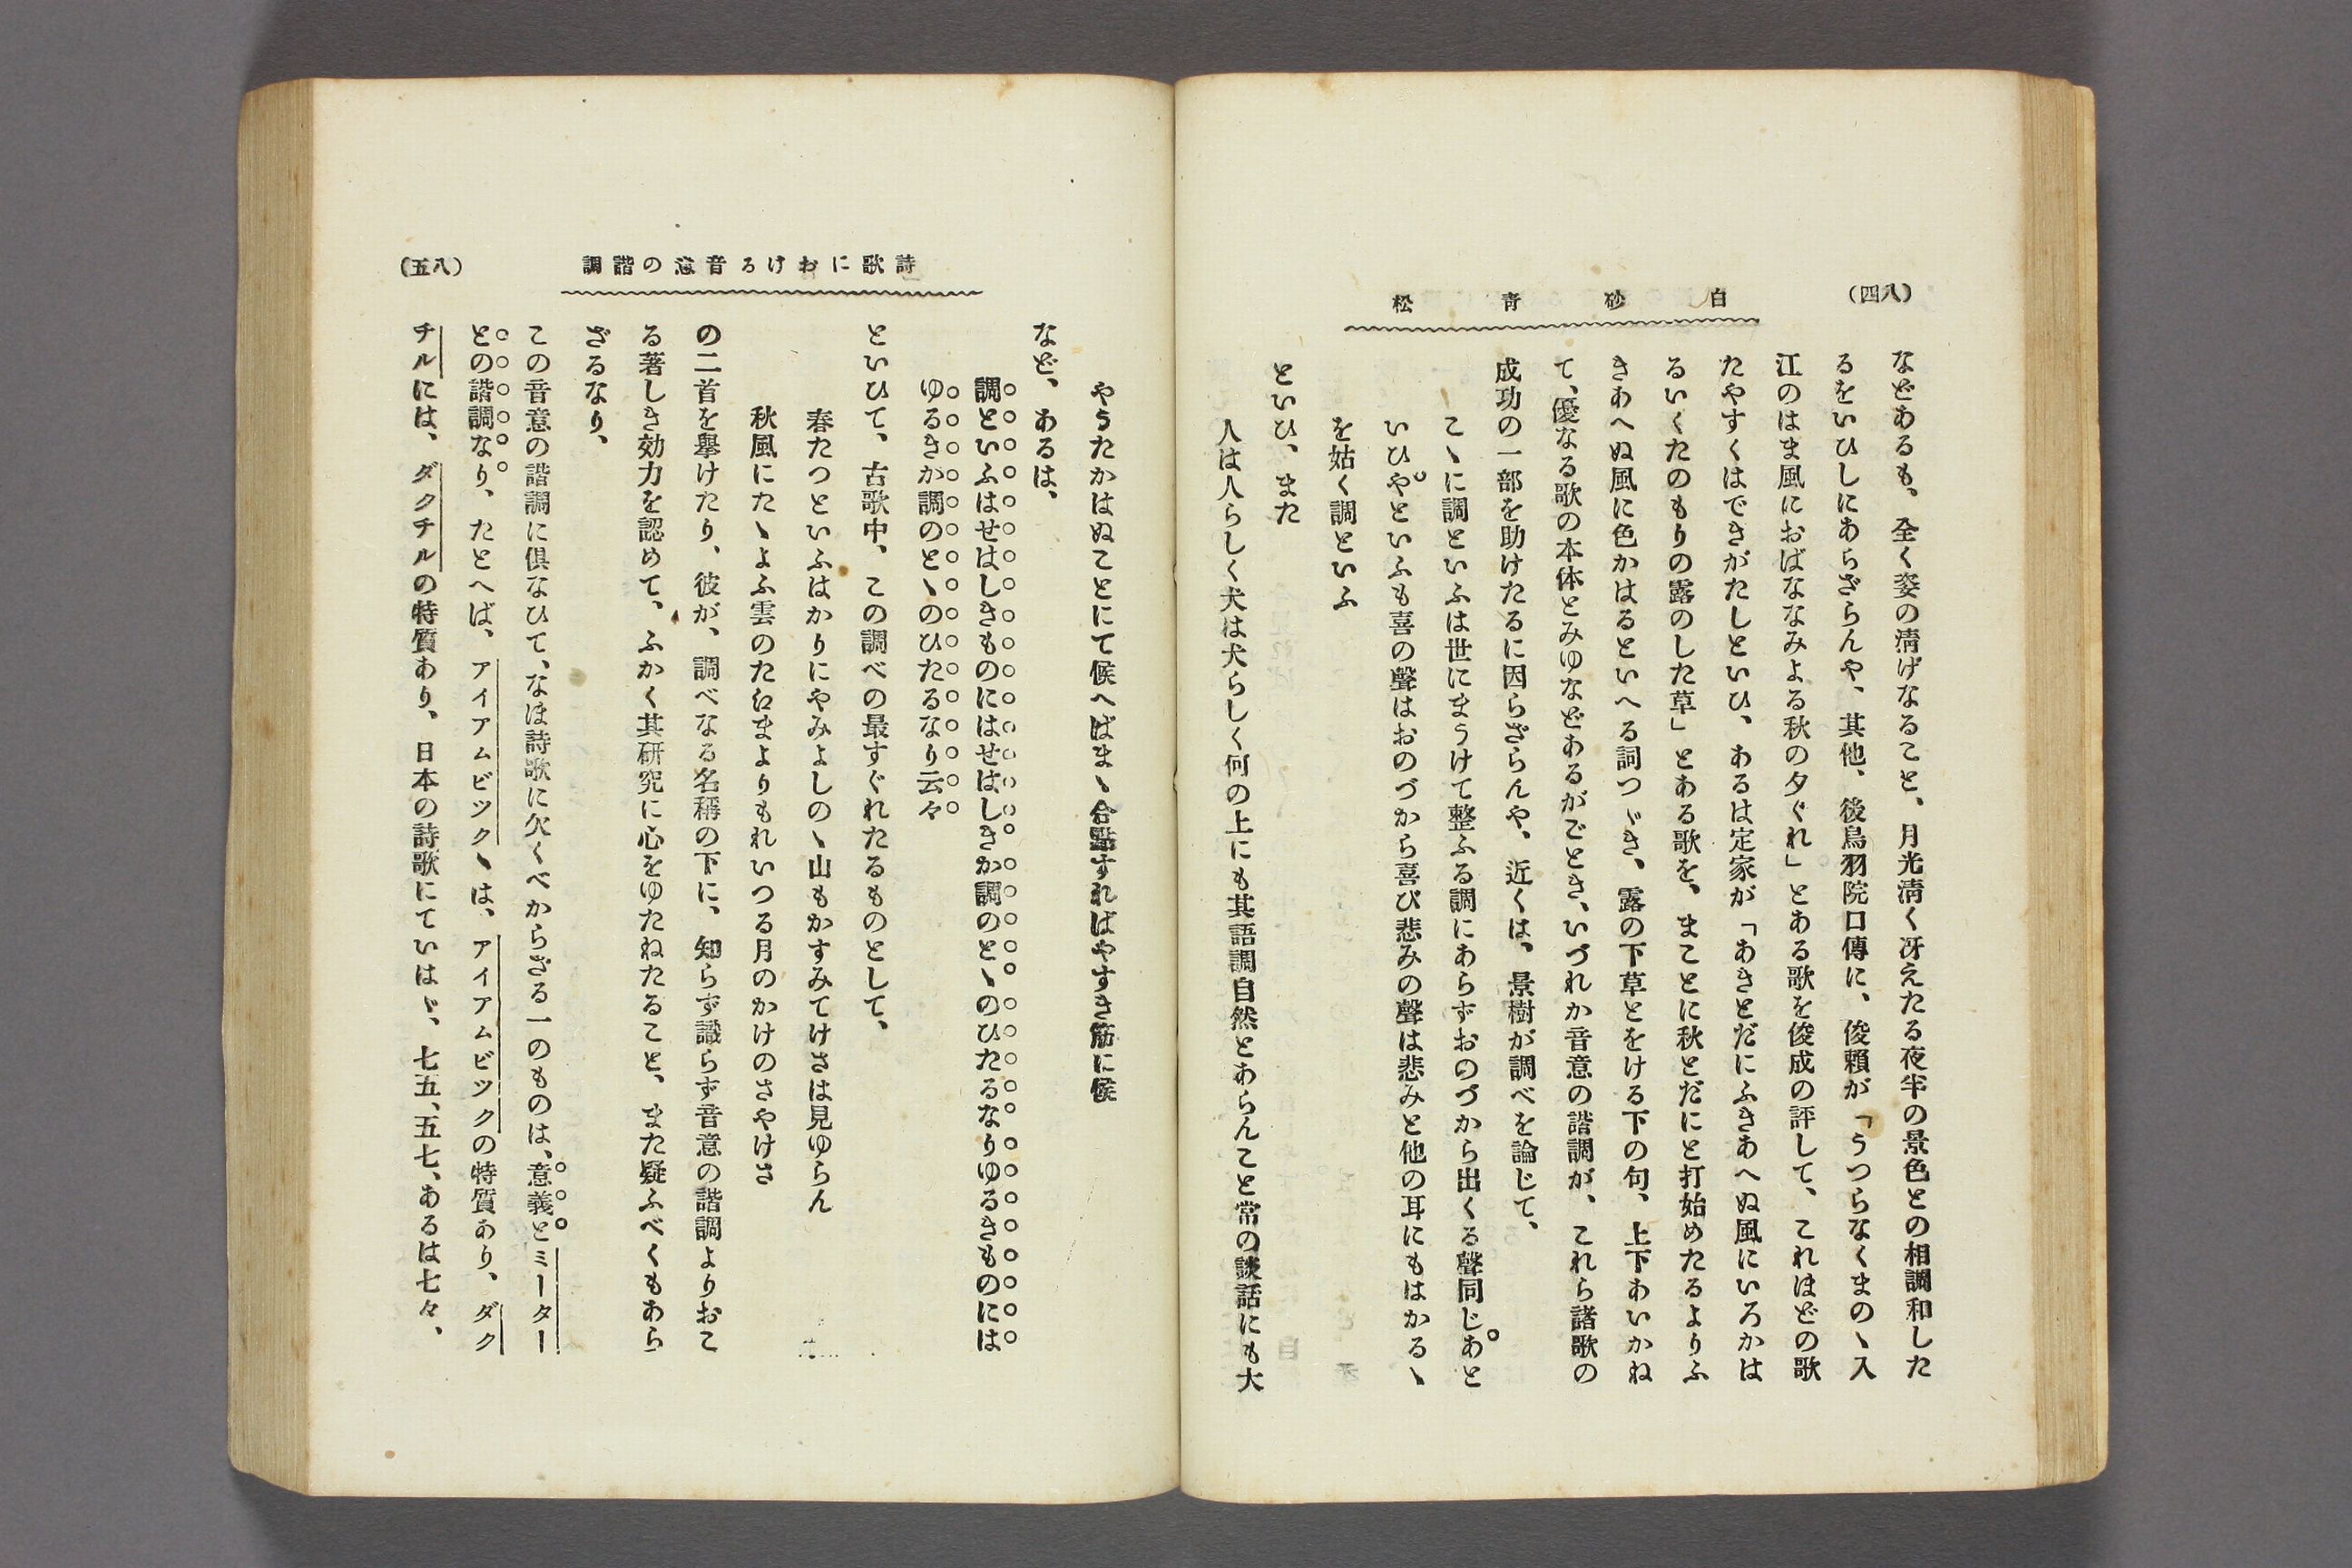 (八四)
白砂青松
などあるも、全く姿の淸げなること、月光淸く冴えたる夜半の景色との相調和した
るをいひしにあらざらんや、其他、後鳥羽院口傳に、俊賴が「うつらなくまのゝ入
江のはま風におばななみよる秋の夕ぐれ」とある歌を俊成の評して、これほどの歌
たやすくはできがたしといひ、あるは定家が「あきとだにふきあへぬ風にいろかは
るいくたのもりの露のした草」とある歌を、まことに秋とだにと打始めたるよりふ
きあへぬ風に色かはるといへる詞つゞき、露の下草とをける下の句、上下あいかね
て、優なる歌の本体とみゆなどあるがごとき、いづれか音意の諧調が、これら諸歌の
成功の一部を助けたるに因らざらんや、近くは、景樹が調べを論じて、
こゝに調といふは世にまうけて整ふる調にあらずおのづから出くる聲同じあと
いひやといふも喜の聲はおのづから喜び悲みの聲は悲みと他の耳にもはかるゝ
を姑く調といふ
といひ、また
人は人らしく犬は犬らしく何の上にも其語調自然とあらんこと常の談話にも大
詩歌における音意の諧調
(八五)
やうたかはぬことにて候へばまゝ合點すればやすき筋に候
など、あるは、
調といふはせはしきものにはせはしきか調のとゝのひたるなりゆるきものには
ゆるきか調のとゝのひたるなり云々
といひて、古歌中、この調べの最すぐれたるものとして、
春たつといふはかりにやみよしのゝ山もかすみてけさは見ゆらん
秋風にたゝよふ雲のたえまよりもれいつる月のかけのさやけさ
の二首を擧けたり、彼が、調べなる名稱の下に、知らず識らず音意の諧調よりおこ
る著しき効力を認めて、ふかく其研究に心をゆたねたること、また疑ふべくもあら
ざるなり、
この音意の諧調に俱なひて、なほ詩歌に欠くべからざる一のものは、意義とミーター
との諧調なり、たとへば、アイアムビツクゝは、アイアムビツクの特質あり、ダク
チルには、ダクチルの特質あり、日本の詩歌にていはゞ、七五、五七、あるは七々、